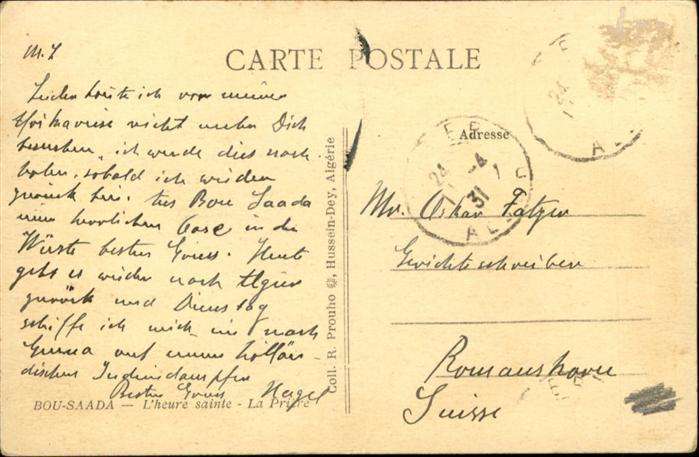 CARTE POSTALE
M. L
Leider konnte ich vor meiner
Afrikareise nicht mehr Dich
besuchen, ich werde dies nach-
holen, sobald ich wieder
zurück bin. Aus Bou Saada
einer herrlichen Oase in der
Wüste besten Gruss. Heute
geht es wieder nach Algier
zurück und Dienstag
schiffe ich mich ein nach
Genua auf einem hollän-
dischen Indiendampfer
Besten Gruss Hegel
BOU-SAADA — L'heure sainte - La Prière
Coll. R. Prouho, Hussein-Dey, Algérie
Adresse
Mr. Oskar Fatzer
Gerichtsschreiber
Romanshorn
Suisse
24
-4
31
AL